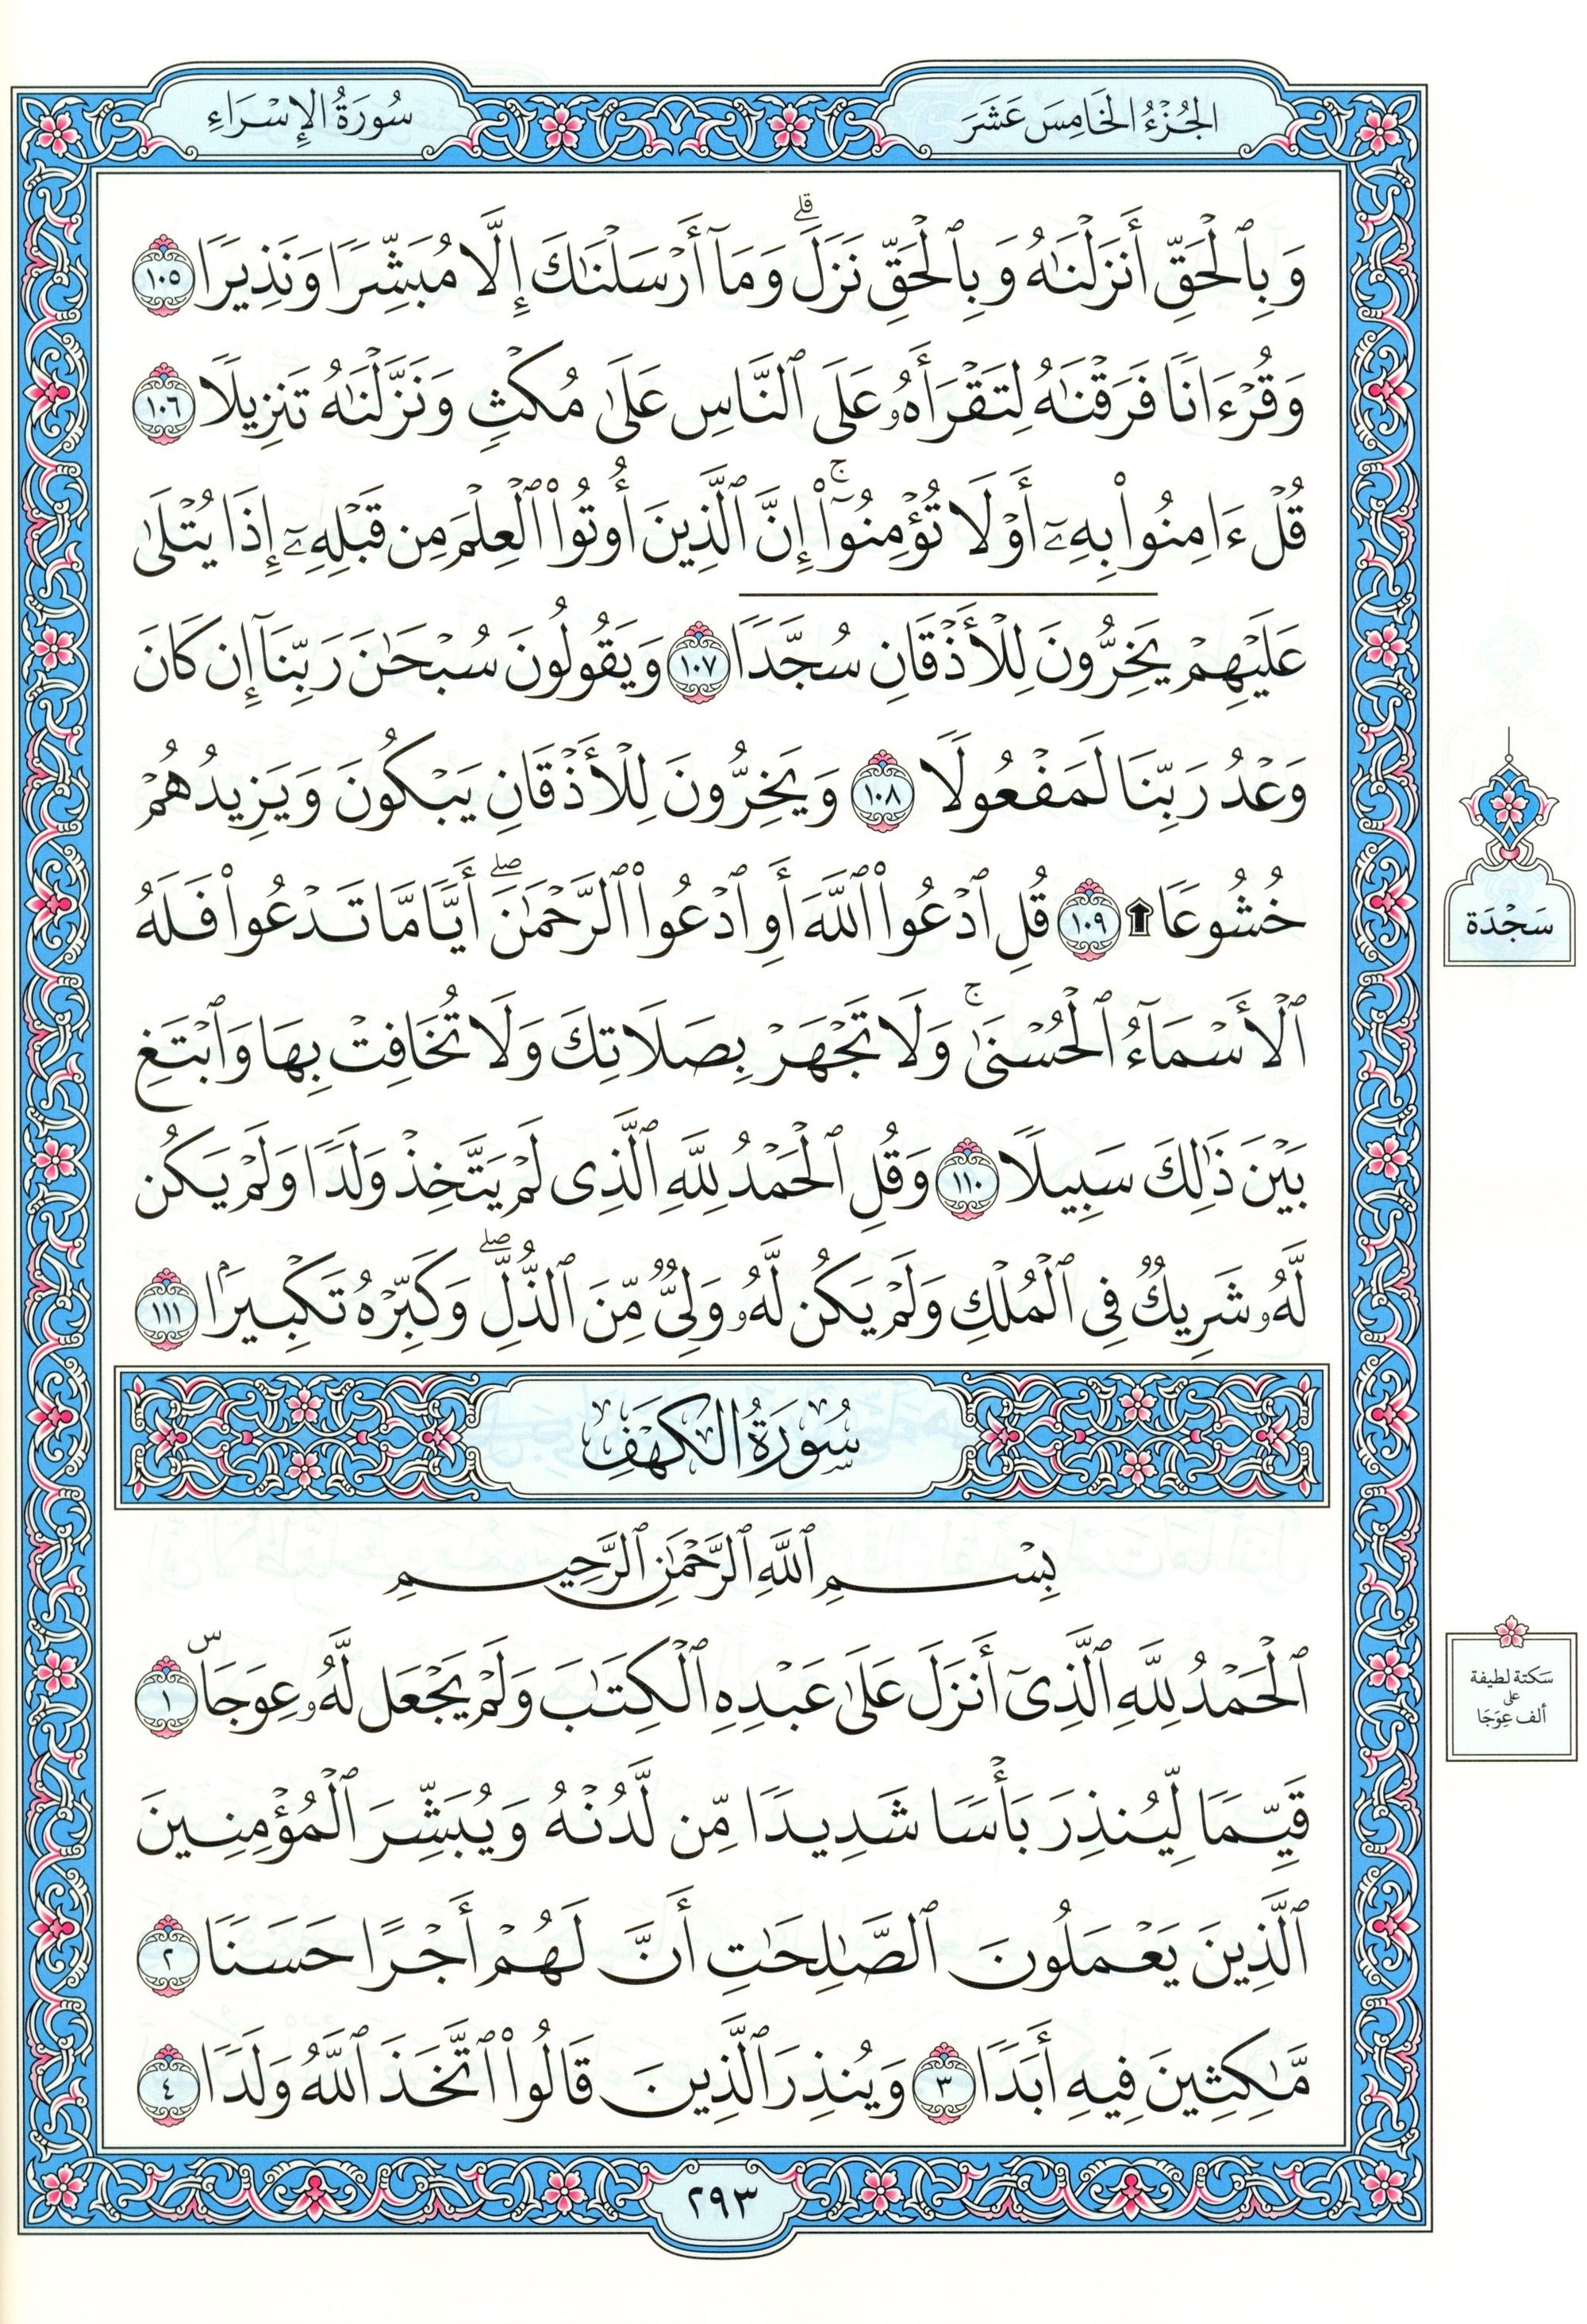 الجُزْءُ الخَامِسَ عَشَرَ
سُورَةُ الإِسْرَاءِ
وَبِٱلْحَقِّ أَنزَلْنَٰهُ وَبِٱلْحَقِّ نَزَلَۗ وَمَآ أَرْسَلْنَٰكَ إِلَّا مُبَشِّرًا وَنَذِيرًا ١٠٥
وَقُرْءَانًا فَرَقْنَٰهُ لِتَقْرَأَهُۥ عَلَى ٱلنَّاسِ عَلَىٰ مُكْثٍ وَنَزَّلْنَٰهُ تَنزِيلًا ١٠٦
قُلْ ءَامِنُوا۟ بِهِۦٓ أَوْ لَا تُؤْمِنُوٓا۟ۚ إِنَّ ٱلَّذِينَ أُوتُوا۟ ٱلْعِلْمَ مِن قَبْلِهِۦٓ إِذَا يُتْلَىٰ
عَلَيْهِمْ يَخِرُّونَ لِلْأَذْقَانِ سُجَّدًا ١٠٧ وَيَقُولُونَ سُبْحَٰنَ رَبِّنَآ إِن كَانَ
وَعْدُ رَبِّنَا لَمَفْعُولًا ١٠٨ وَيَخِرُّونَ لِلْأَذْقَانِ يَبْكُونَ وَيَزِيدُهُمْ
خُشُوعًا ۩ ١٠٩ قُلِ ٱدْعُوا۟ ٱللَّهَ أَوِ ٱدْعُوا۟ ٱلرَّحْمَٰنَۖ أَيًّا مَّا تَدْعُوا۟ فَلَهُ
ٱلْأَسْمَآءُ ٱلْحُسْنَىٰۚ وَلَا تَجْهَرْ بِصَلَاتِكَ وَلَا تُخَافِتْ بِهَا وَٱبْتَغِ
بَيْنَ ذَٰلِكَ سَبِيلًا ١١٠ وَقُلِ ٱلْحَمْدُ لِلَّهِ ٱلَّذِى لَمْ يَتَّخِذْ وَلَدًا وَلَمْ يَكُن
لَّهُۥ شَرِيكٌ فِى ٱلْمُلْكِ وَلَمْ يَكُن لَّهُۥ وَلِىٌّ مِّنَ ٱلذُّلِّۖ وَكَبِّرْهُ تَكْبِيرًۢا ١١١
سُورَةُ الكَهْفِ
بِسْمِ ٱللَّهِ ٱلرَّحْمَٰنِ ٱلرَّحِيمِ
ٱلْحَمْدُ لِلَّهِ ٱلَّذِىٓ أَنزَلَ عَلَىٰ عَبْدِهِ ٱلْكِتَٰبَ وَلَمْ يَجْعَل لَّهُۥ عِوَجَاۜ ١
قَيِّمًا لِّيُنذِرَ بَأْسًا شَدِيدًا مِّن لَّدُنْهُ وَيُبَشِّرَ ٱلْمُؤْمِنِينَ
ٱلَّذِينَ يَعْمَلُونَ ٱلصَّٰلِحَٰتِ أَنَّ لَهُمْ أَجْرًا حَسَنًا ٢
مَّٰكِثِينَ فِيهِ أَبَدًا ٣ وَيُنذِرَ ٱلَّذِينَ قَالُوا۟ ٱتَّخَذَ ٱللَّهُ وَلَدًا ٤
٢٩٣
سَجْدَة
سَكتة لطيفة
على
ألف عِوَجَا